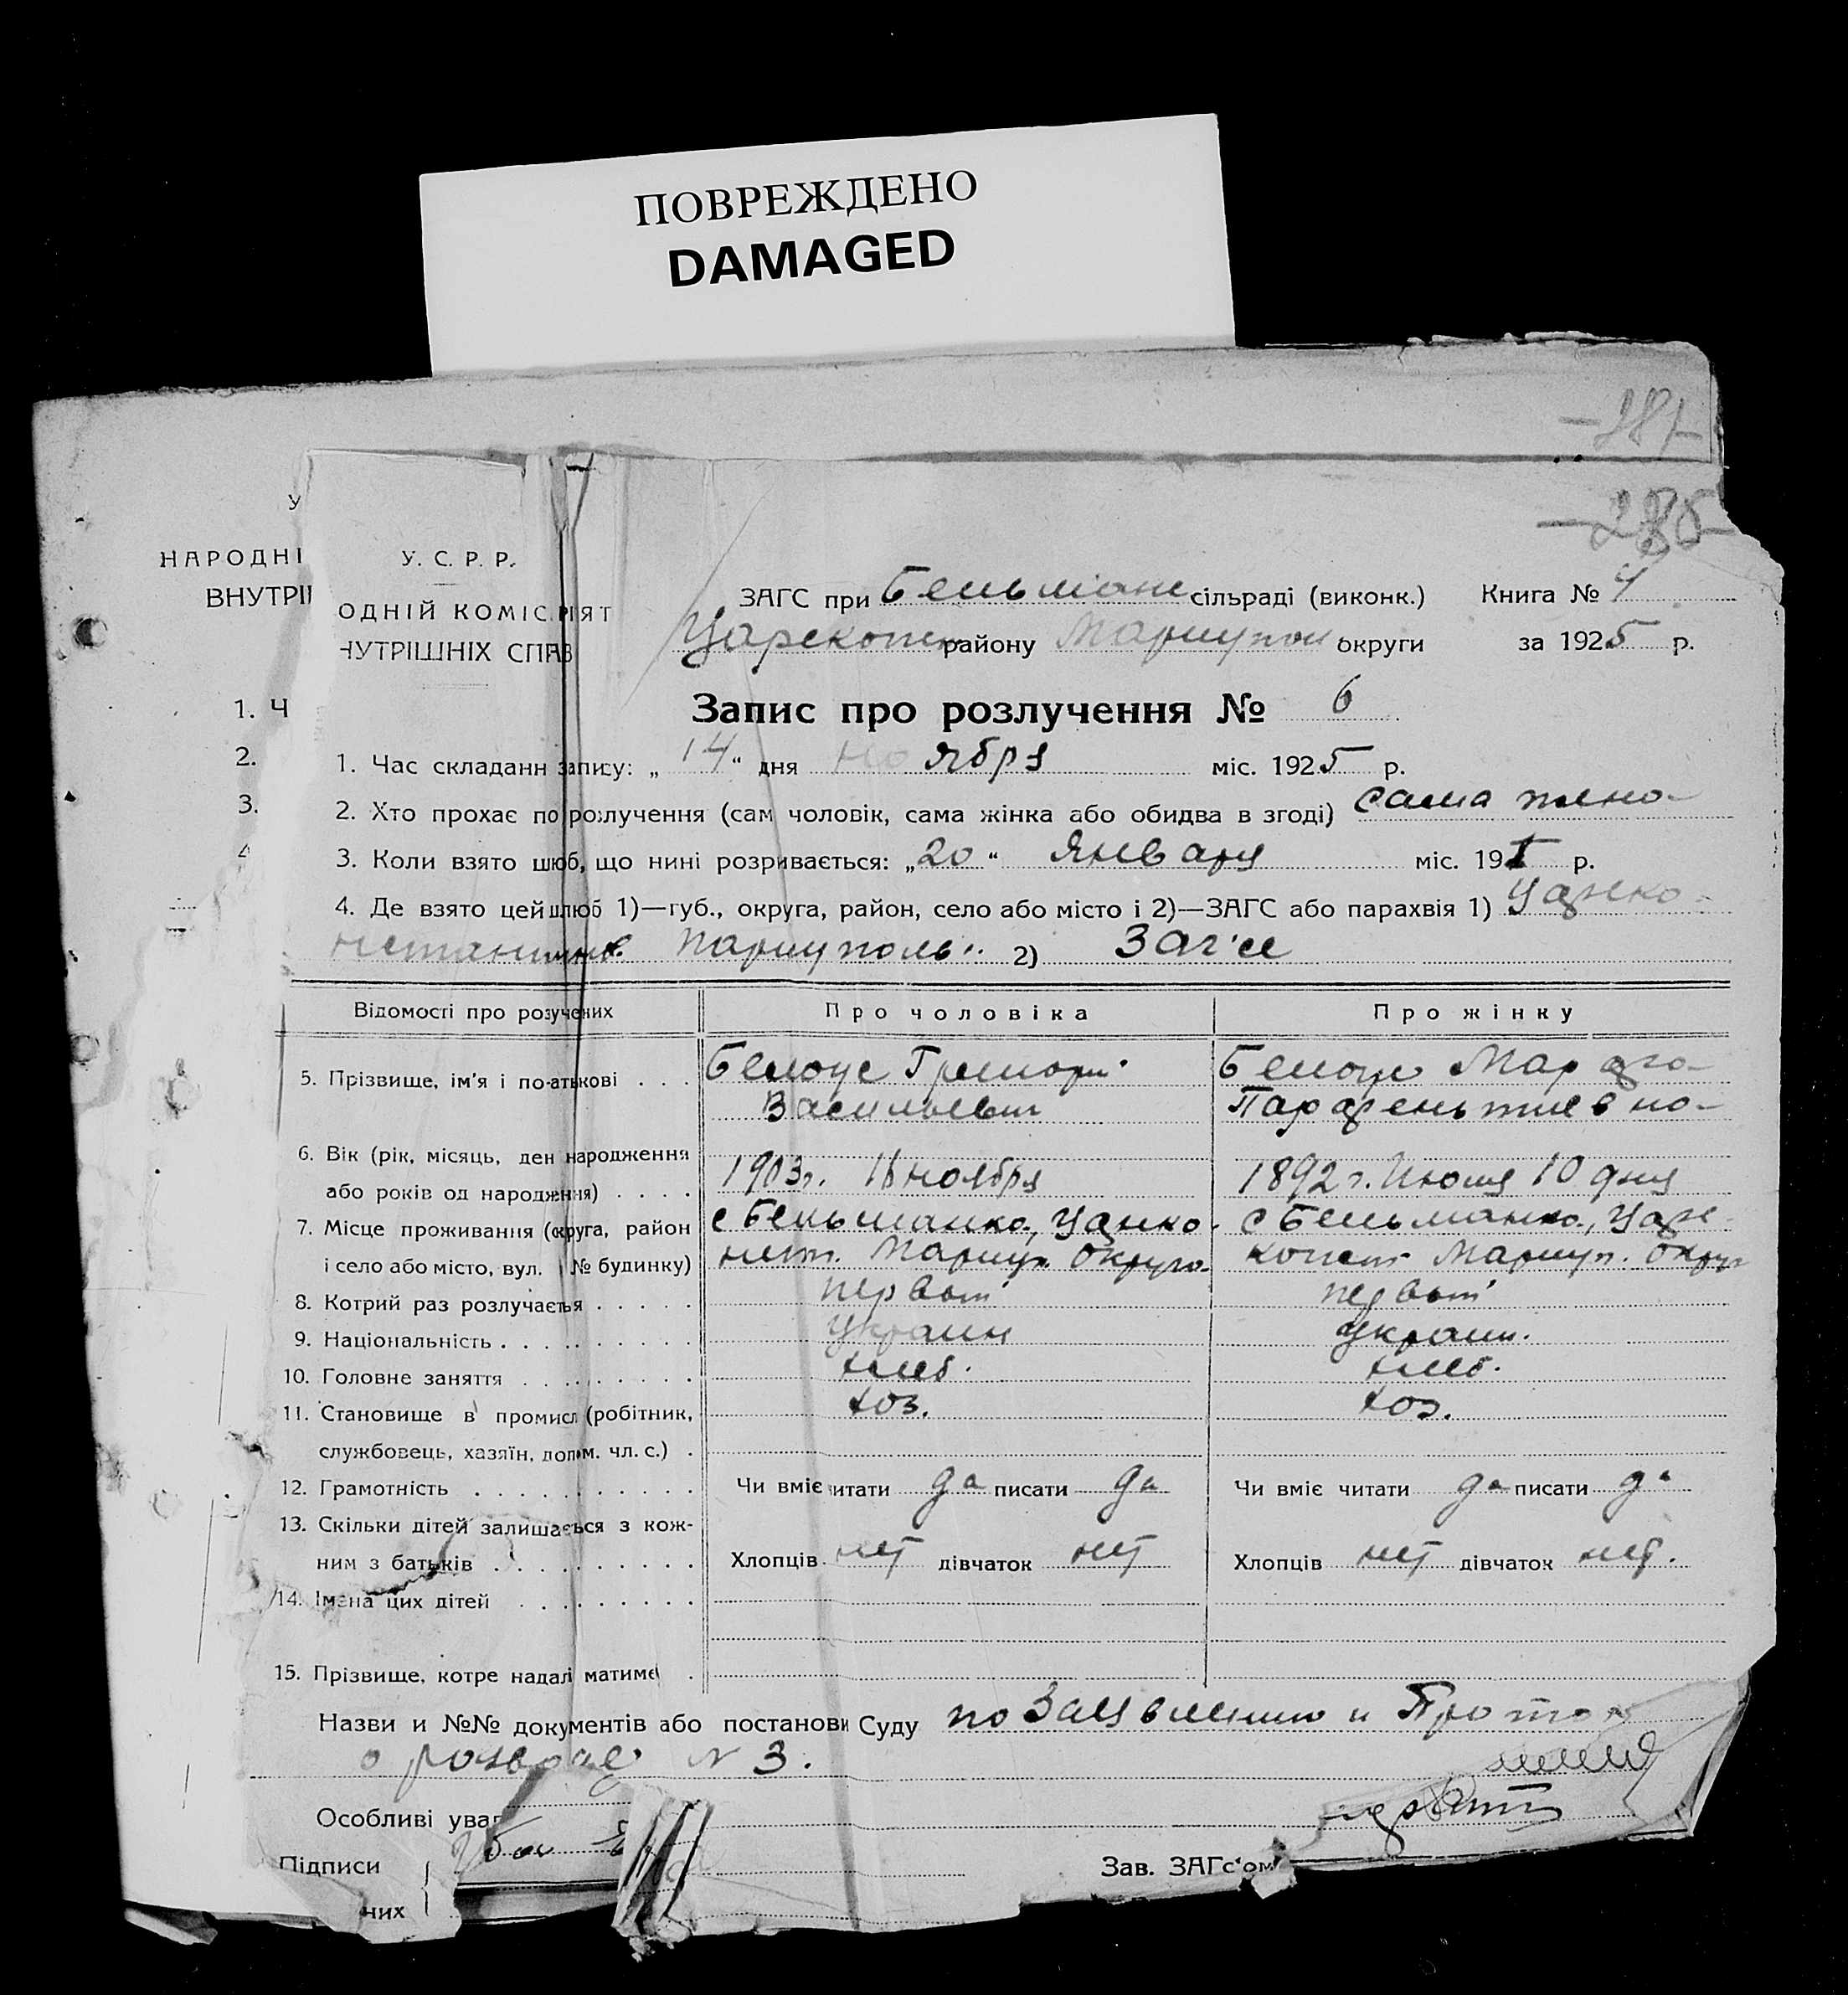 ПОВРЕЖДЕНО
DAMAGED
-287-
У
НАРОДНІ
ВНУТРІ
У. С. Р. Р.
ОДНІЙ КОМІС РІЯТ
НУТРІШНІХ СПРАВ
ЗАГС при Бельманс сільраді (виконк.) Книга № 4
району Мариупол округи за 1925 р.
Запис про розлучення № 6
1. Ч
2.
3.
1. Час складанн запису: „14“ дня ноября міс. 1925 р.
2. Хто прохає по розлучення (сам чоловік, сама жінка або обидва в згоді) сама
3. Коли взято шлюб, що нині розривається: „20“ Января міс. 19 р.
4. Де взято цей шлюб 1)—губ., округа, район, село або місто і 2)—ЗАГС або парахвія 1) Цареко-
2) Заг'се
Відомості про розучених Про чоловіка Про жінку
5. Прізвище, ім'я і по-атькові . . . Белоус Григори Белоус Марфа
Васильевич Парфентиевна
6. Вік (рік, місяць, ден народження
або років од народження) . . . . 1903г. 16 ноября 1892 г. Июля 10 дня
7. Місце проживання (округа, район с Бельманка, Цареко- с Бельманка, Царе-
і село або місто, вул. № будинку) нст. Мариуп. округа конст Мариуп. округ
8. Котрий раз розлучається . . . . . первый первый
9. Національність . . . . . . . . . украин украин.
10. Головне заняття . . . . . . . . . хлеб. хлеб.
11. Становище в промисл (робітник, хоз. хоз.
службовець, хазяїн, допом. чл. с.) .
12. Грамотність . . . . . . . . . . Чи вміє читати да писати да Чи вміє читати да писати да
13. Скільки дітей залишається з кож-
ним з батьків . . . . . . . . . . Хлопців нет дівчаток нет Хлопців нет дівчаток нет.
14. Імена цих дітей . . . . . . . . .
15. Прізвище, котре надалі матиме .
Назви и №№ документів або постанови Суду по Заявлению и Проток
о розводе N 3.
Особливі уваг
Підписи Зав. ЗАГс'ом
них